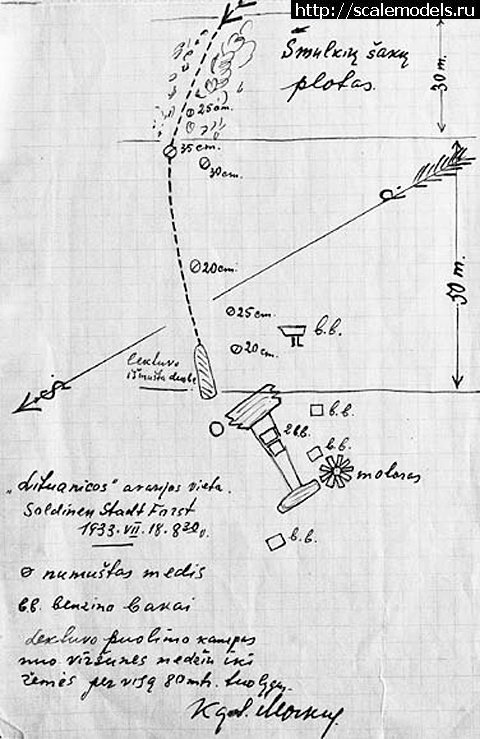 http://scalemodels.ru
Smulkių šakų
plotas.
30 m.
⌀ 25 cm.
⌀ 35 cm.
⌀ 30 cm.
50 m.
⌀ 20 cm.
⌀ 25 cm
b.b.
⌀ 20 cm.
lėktuvo
išmušta duobė
S
b.b.
2 b.b.
b.b.
motoras
b.b.
„Lituanicos" avarijos vieta.
Soldinen Stadt Forst
1933. VII. 18. 8 30
⌀ numuštas medis
bb. benzino bakai
Lektuvo puolimo kampas
nuo viršunės medžių iki
žemės per visą 80 mtr.